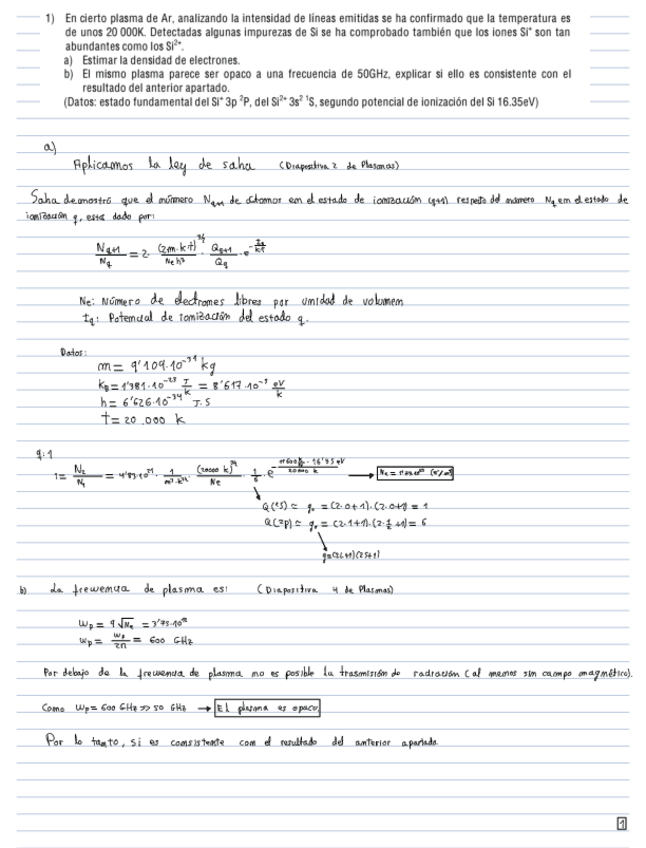 1) En cierto plasma de Ar, analizando la intensidad de líneas emitidas se ha confirmado que la temperatura es
de unos 20 000K. Detectadas algunas impurezas de Si se ha comprobado también que los iones Si⁺ son tan
abundantes como los Si²⁺.
a) Estimar la densidad de electrones.
b) El mismo plasma parece ser opaco a una frecuencia de 50GHz, explicar si ello es consistente con el
resultado del anterior apartado.
(Datos: estado fundamental del Si⁺ 3p ²P, del Si²⁺ 3s² ¹S, segundo potencial de ionización del Si 16.35eV)
a)
Aplicamos la ley de saha (Diapositiva 2 de Plasmas)
Saha demostró que el número Nq+1 de átomos en el estado de ionización (q+1) respecto del número Nq en el estado de
ionización q, está dado por:
Nq+1/Nq = 2 · (2m·k·t)^3/2 / Ne h³ · Qq+1/Qq · e^-Iq/kt
Ne: Número de electrones libres por unidad de volumen
Iq: Potencial de ionización del estado q.
Datos:
m = 9'109·10⁻³¹ kg
kB = 1'381·10⁻²³ J/k = 8'617·10⁻⁵ eV/k
h = 6'626·10⁻³⁴ J·s
t = 20.000 k
q:1
1 = N2/N1 = 4'83·10²¹ · 1/m³·k^3/2 · (20000 k)^3/2 / Ne · 1/6 · e
Q(¹S) ≃ g₀ = (2·0+1)·(2·0+1) = 1
Q(²p) ≃ g₀ = (2·1+1)·(2·½+1) = 6
g=(2L+1)(2S+1)
b) La frecuencia de plasma es: (Diapositiva 4 de Plasmas)
ωp = 9 √Ne = 3'75·10¹²
νp = ωp/2π = 600 GHz
Por debajo de la frecuencia de plasma no es posible la trasmisión de radiación (al menos sin campo magnético).
Como νp = 600 GHz >> 50 GHz → El plasma es opaco
Por lo tanto, si es consistente con el resultado del anterior apartado.
1